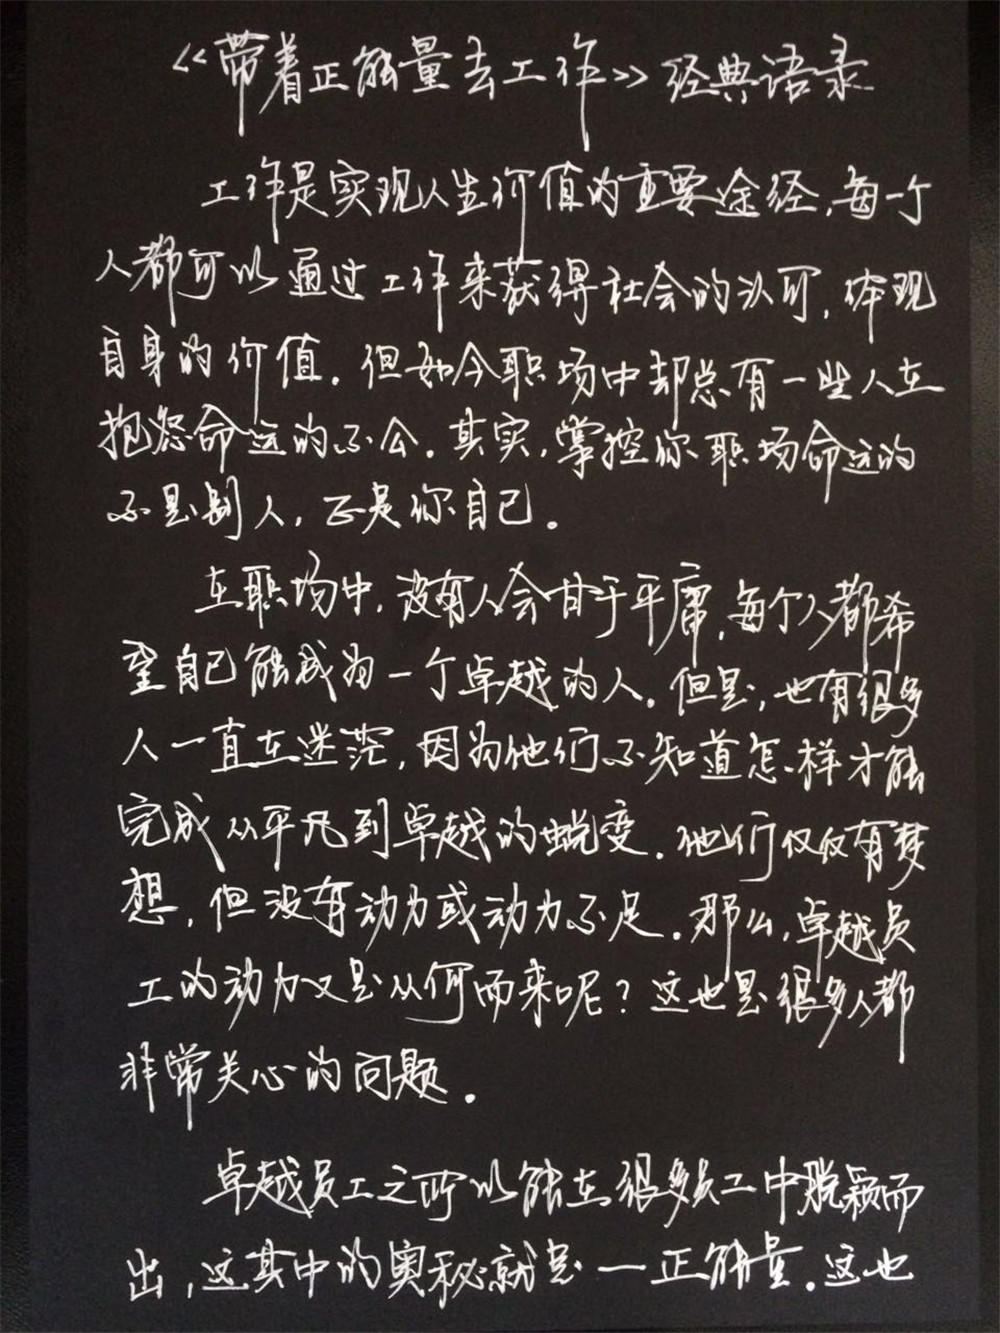 《带着正能量去工作》经典语录
工作是实现人生价值的重要途经,每一个
人都可以通过工作来获得社会的认可,体现
自身的价值.但如今职场中却总有一些人在
抱怨命运的不公.其实,掌控你职场命运的
不是别人,正是你自己。
在职场中,没有人会甘于平庸,每个人都希
望自己能成为一个卓越的人.但是,也有很多
人一直在迷茫,因为他们不知道怎样才能
完成从平凡到卓越的蜕变.他们仅仅有梦
想,但没有动力或动力不足.那么,卓越员
工的动力又是从何而来呢?这也是很多人都
非常关心的问题.
卓越员工之所以能在很多员工中脱颖而
出,这其中的奥秘就是一正能量.这也